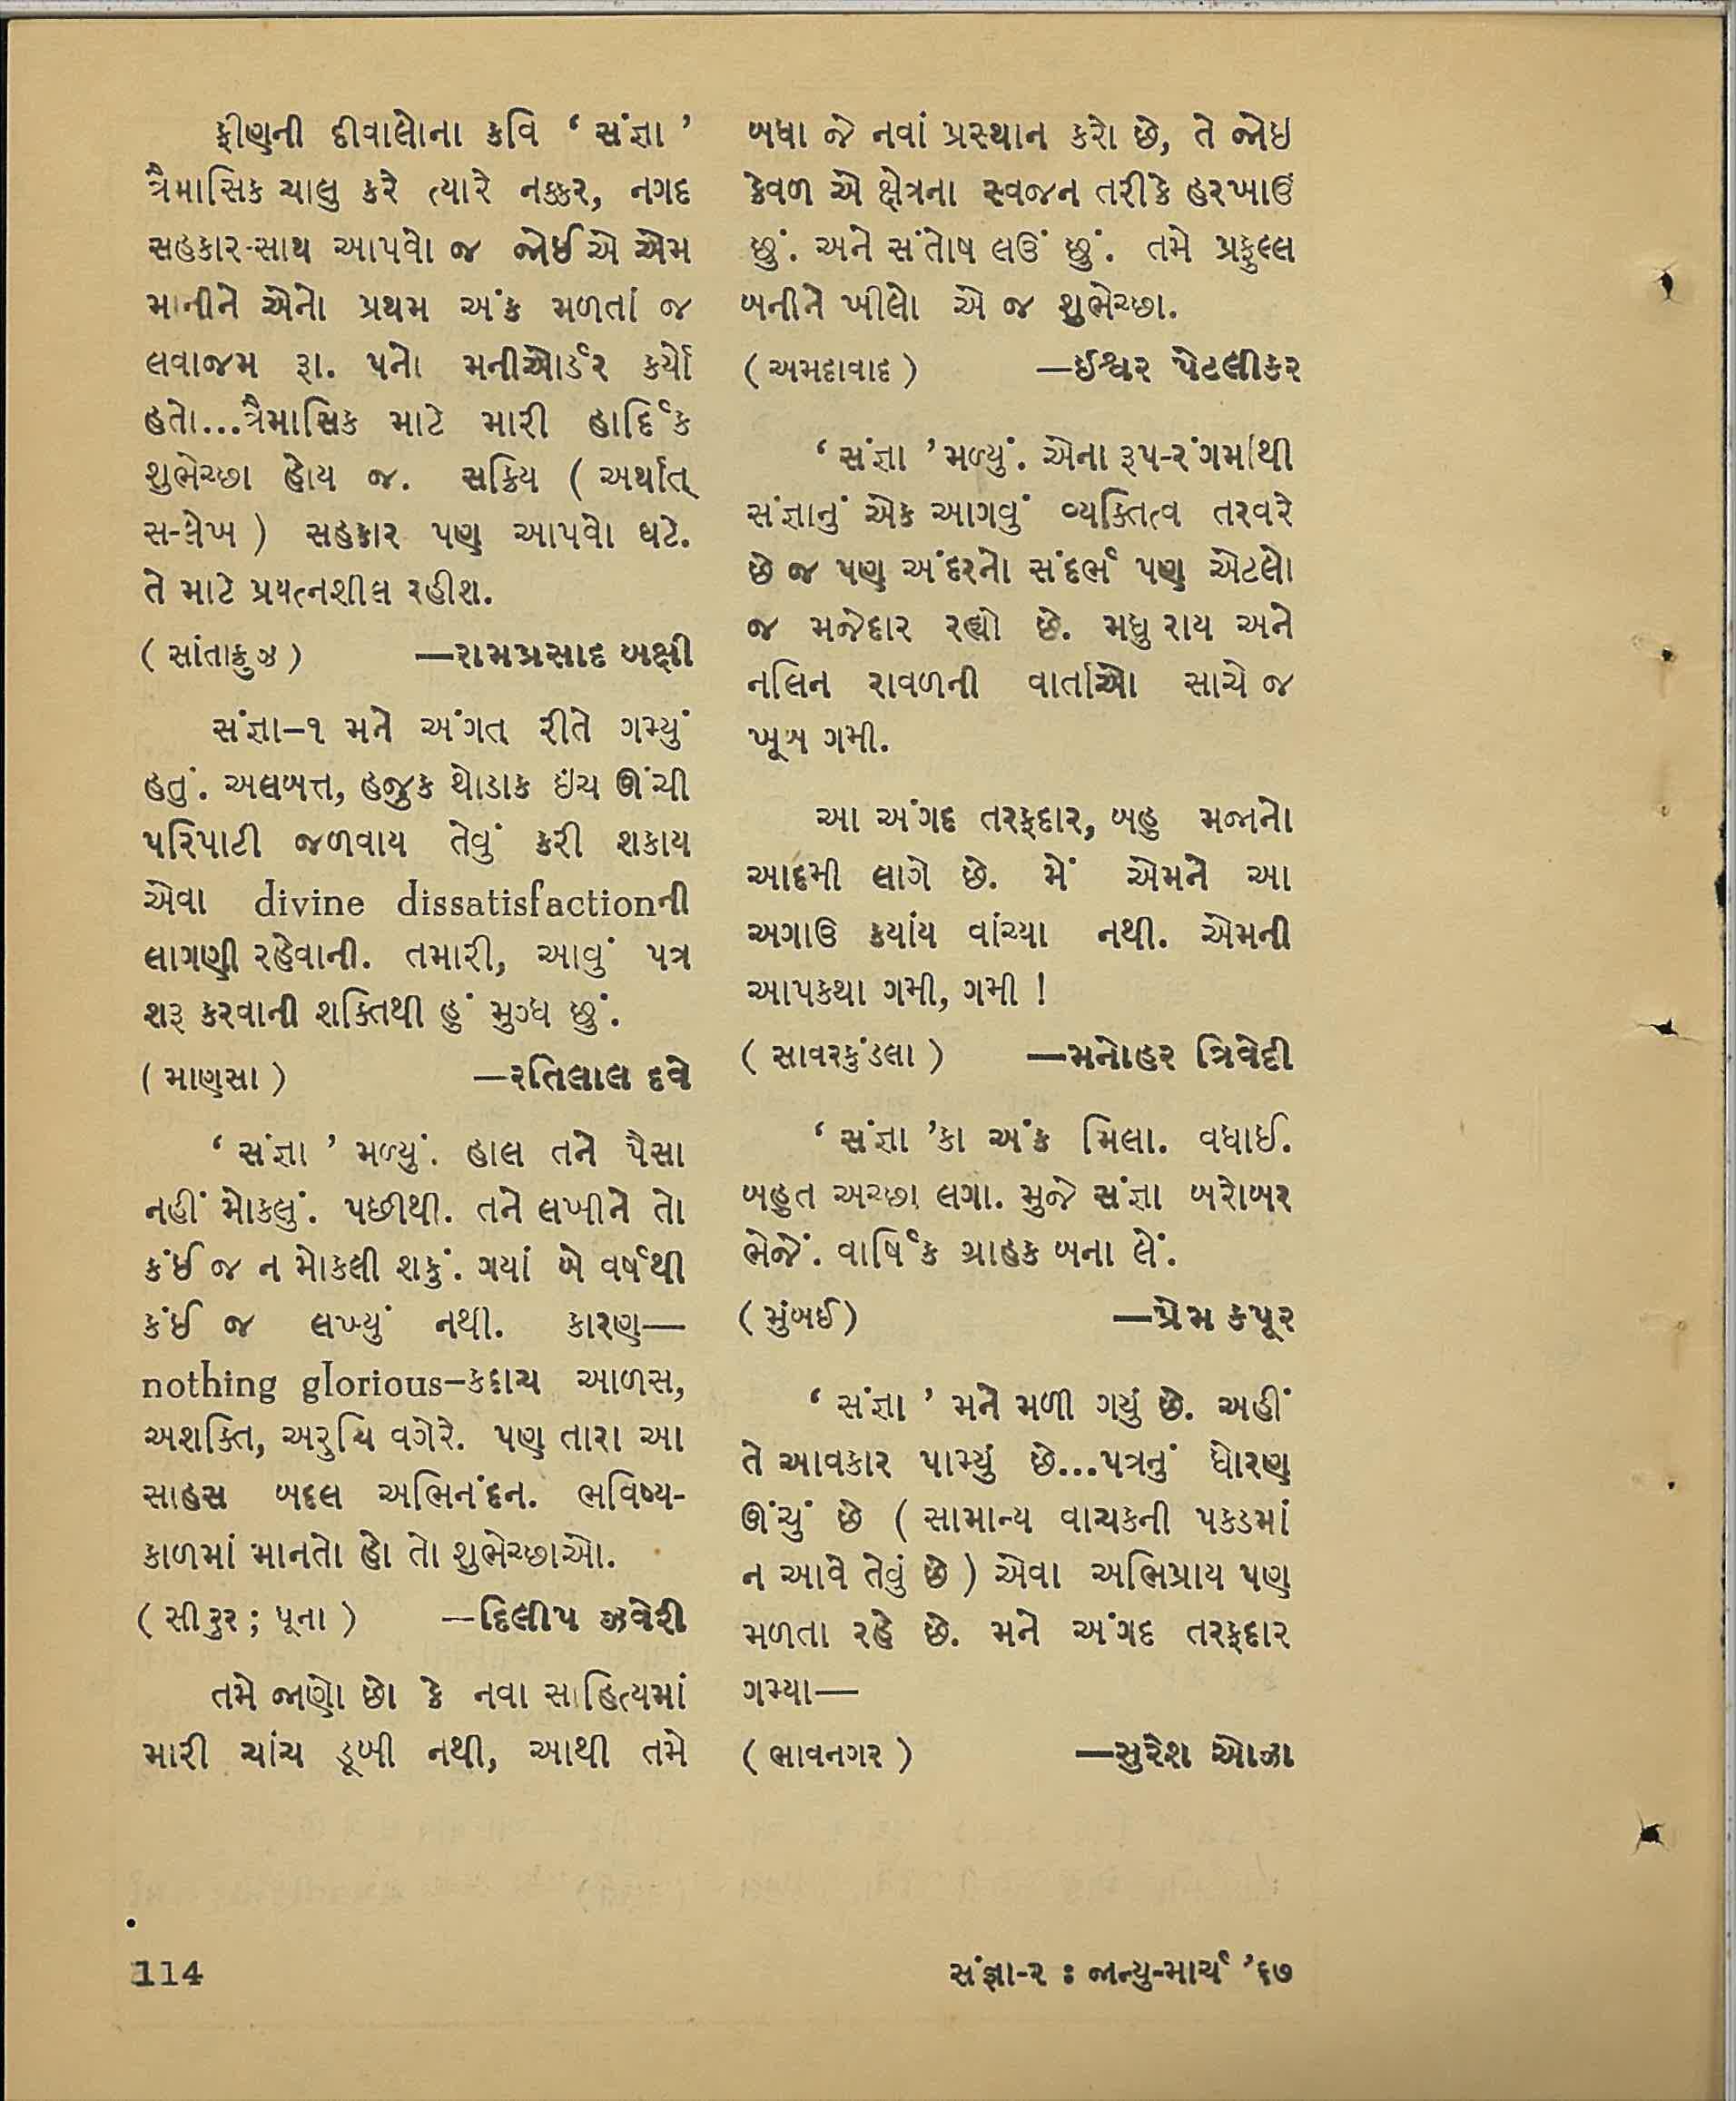 ફીણની દીવાલોના કવિ ‘ સંજ્ઞા ’
ત્રૈમાસિક ચાલુ કરે ત્યારે નક્કર, નગદ
સહકાર-સાથ આપવો જ જોઈએ એમ
માનીને એનો પ્રથમ અંક મળતાં જ
લવાજમ રૂા. ૫નો મનીઓર્ડર કર્યો
હતો...ત્રૈમાસિક માટે મારી હાર્દિક
શુભેચ્છા હોય જ. સક્રિય ( અર્થાત્
સ-લેખ ) સહકાર પણ આપવો ઘટે.
તે માટે પ્રયત્નશીલ રહીશ.
( સાંતાક્રુઝ ) —રામપ્રસાદ બક્ષી
સંજ્ઞા–૧ મને અંગત રીતે ગમ્યું
હતું. અલબત્ત, હજુક થોડાક ઇંચ ઊંચી
પરિપાટી જળવાય તેવું કરી શકાય
એવા divine dissatisfactionની
લાગણી રહેવાની. તમારી, આવું પત્ર
શરૂ કરવાની શક્તિથી હું મુગ્ધ છું.
( માણસા ) —રતિલાલ દવે
‘ સંજ્ઞા ’ મળ્યું. હાલ તને પૈસા
નહીં મોકલું. પછીથી. તને લખીને તો
કંઈ જ ન મોકલી શકું. ગયાં બે વર્ષથી
કંઈ જ લખ્યું નથી. કારણ—
nothing glorious–કદાચ આળસ,
અશક્તિ, અરુચિ વગેરે. પણ તારા આ
સાહસ બદલ અભિનંદન. ભવિષ્ય-
કાળમાં માનતો હો તો શુભેચ્છાઓ.
( સીરુર ; પૂના ) —દિલીપ ઝવેરી
તમે જાણો છો કે નવા સાહિત્યમાં
મારી ચાંચ ડૂબી નથી, આથી તમે
બધા જે નવાં પ્રસ્થાન કરો છે, તે જોઇ
કેવળ એ ક્ષેત્રના સ્વજન તરીકે હરખાઉં
છું. અને સંતોષ લઉં છું. તમે પ્રફુલ્લ
બનીને ખીલો એ જ શુભેચ્છા.
( અમદાવાદ ) —ઈશ્વર પેટલીકર
‘ સંજ્ઞા ’ મળ્યું. એના રૂપ-રંગમાંથી
સંજ્ઞાનું એક આગવું વ્યક્તિત્વ તરવરે
છે જ પણ અંદરનો સંદર્ભ પણ એટલો
જ મજેદાર રહ્યો છે. મધુ રાય અને
નલિન રાવળની વાર્તાઓ સાચે જ
ખૂબ ગમી.
આ અંગદ તરફદાર, બહુ મજાનો
આદમી લાગે છે. મેં એમને આ
અગાઉ કયાંય વાંચ્યા નથી. એમની
આપકથા ગમી, ગમી !
( સાવરકુંડલા ) —મનોહર ત્રિવેદી
‘ સંજ્ઞા ’કા અંક મિલા. વધાઈ.
બહુત અચ્છા લગા. મુજે સંજ્ઞા બરોબર
ભેજેં. વાર્ષિક ગ્રાહક બના લેં.
( મુંબઈ ) —પ્રેમ કપૂર
‘ સંજ્ઞા ’ મને મળી ગયું છે. અહીં
તે આવકાર પામ્યું છે...પત્રનું ધોરણ
ઊંચું છે ( સામાન્ય વાચકની પકડમાં
ન આવે તેવું છે ) એવા અભિપ્રાય પણ
મળતા રહે છે. મને અંગદ તરફદાર
ગમ્યા—
( ભાવનગર ) —સુરેશ ઓઝા
114 સંજ્ઞા-૨ : જાન્યુ-માર્ચ ’૬૭